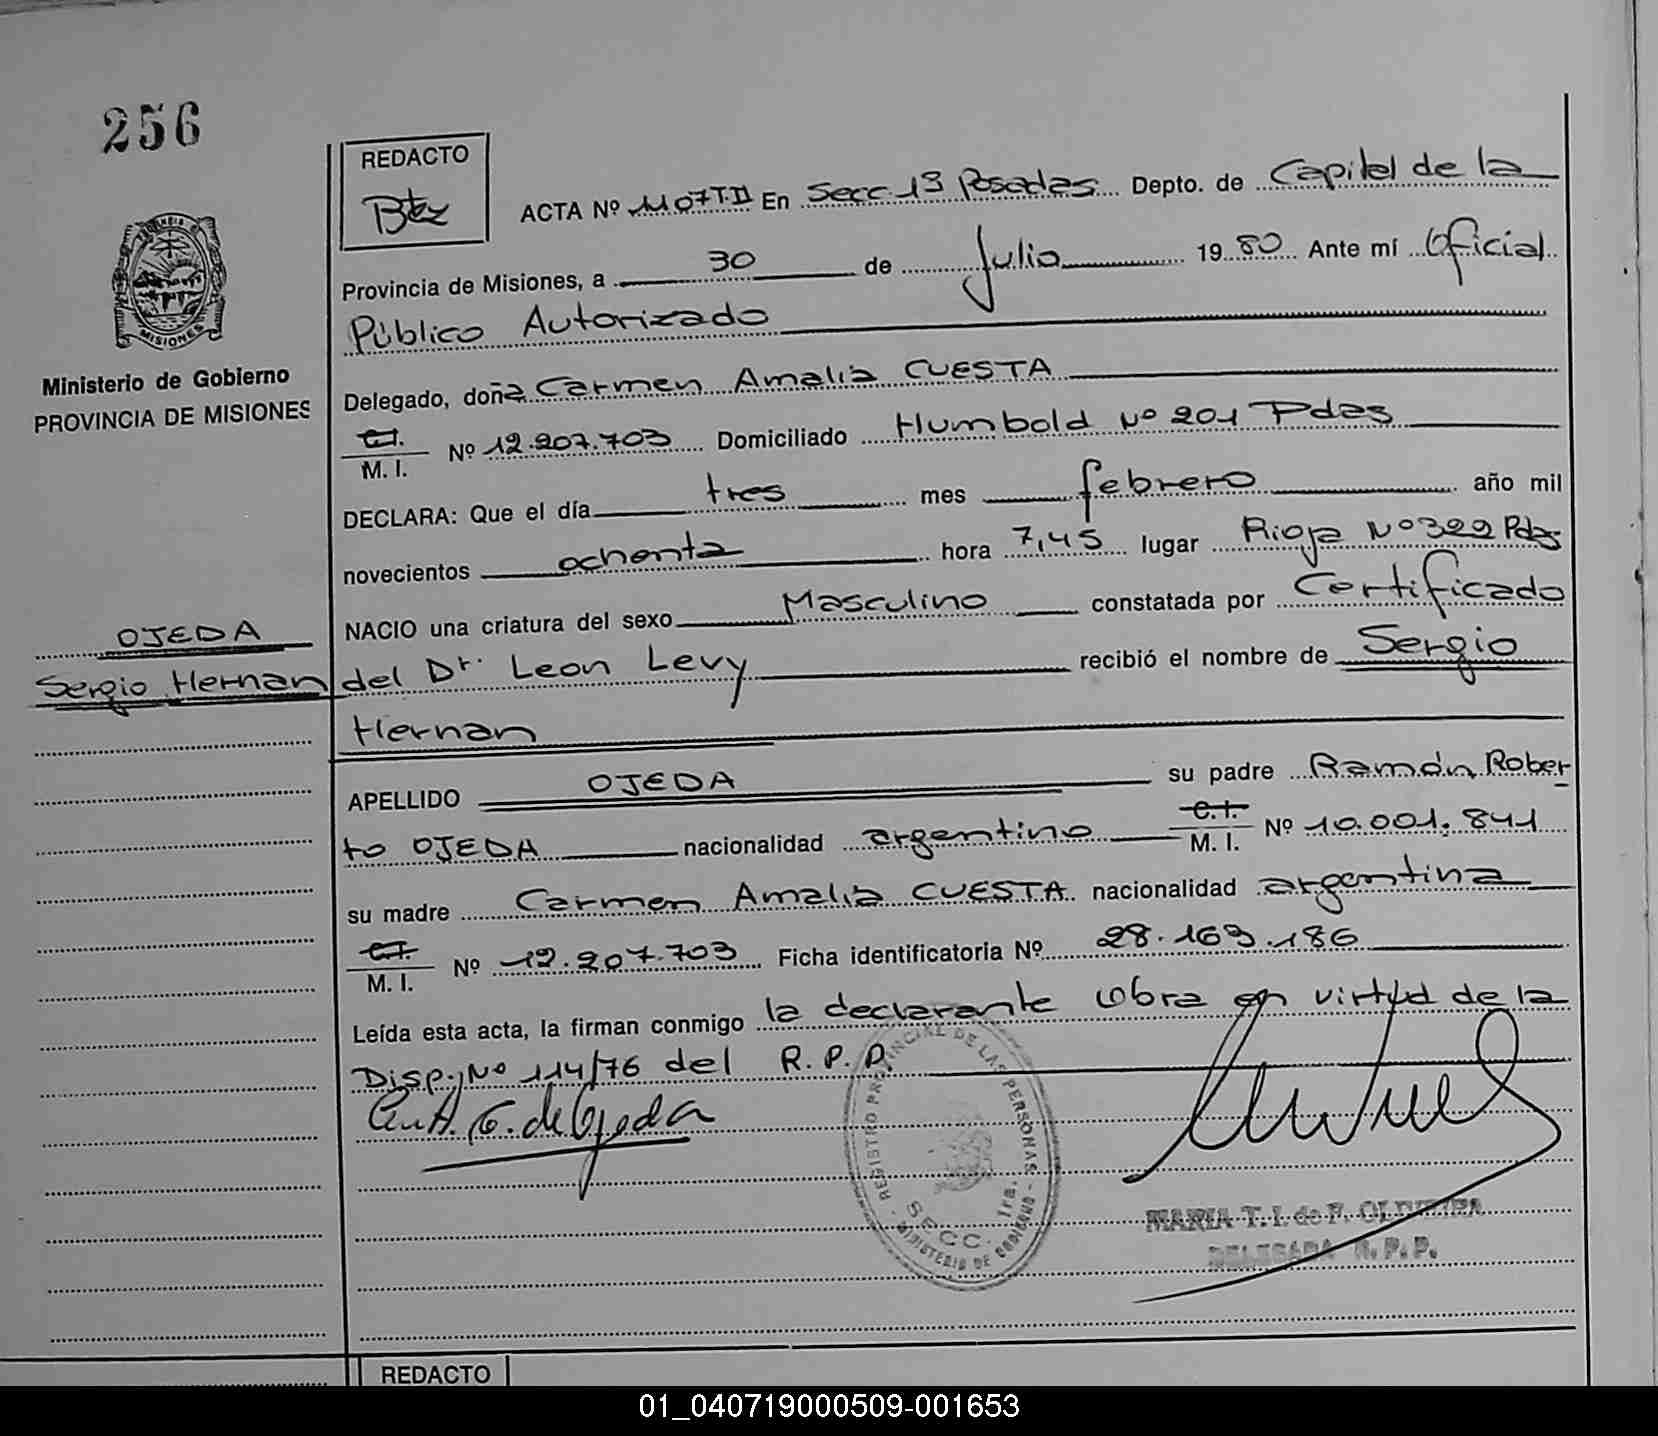 256
REDACTO
Btez
ACTA Nº 1107 T.II En Secc. 1ª Posadas Depto. de Capital de la
Provincia de Misiones, a 30 de Julio 1980 Ante mí Oficial
Público Autorizado
Ministerio de Gobierno
PROVINCIA DE MISIONES
Delegado, doña Carmen Amalia CUESTA
C.I.
M. I. Nº 12.207.703 Domiciliado Humbold Nº 201 Pdas
DECLARA: Que el día tres mes febrero año mil
novecientos ochenta hora 7,45 lugar Rioja Nº 322 Pdas
NACIO una criatura del sexo Masculino constatada por Certificado
OJEDA
Sergio Hernan
del Dr. Leon Levy recibió el nombre de Sergio
Hernan
APELLIDO OJEDA su padre Ramón Rober
to OJEDA nacionalidad argentino C.I. M. I. Nº 10.001.841
su madre Carmen Amalia CUESTA nacionalidad argentina
C.I.
M. I. Nº 12.207.703 Ficha identificatoria Nº 28.169.186
Leída esta acta, la firman conmigo la declarante obra en virtud de la
Disp. Nº 114/76 del R.P.P.
C. de Ojeda
REGISTRO PROVINCIAL DE LAS PERSONAS - MINISTERIO DE GOBIERNO -
SECC. 1ra.
MARIA T. I. de F. OLIVEIRA
DELEGADA R. P. P.
REDACTO
01_040719000509-001653